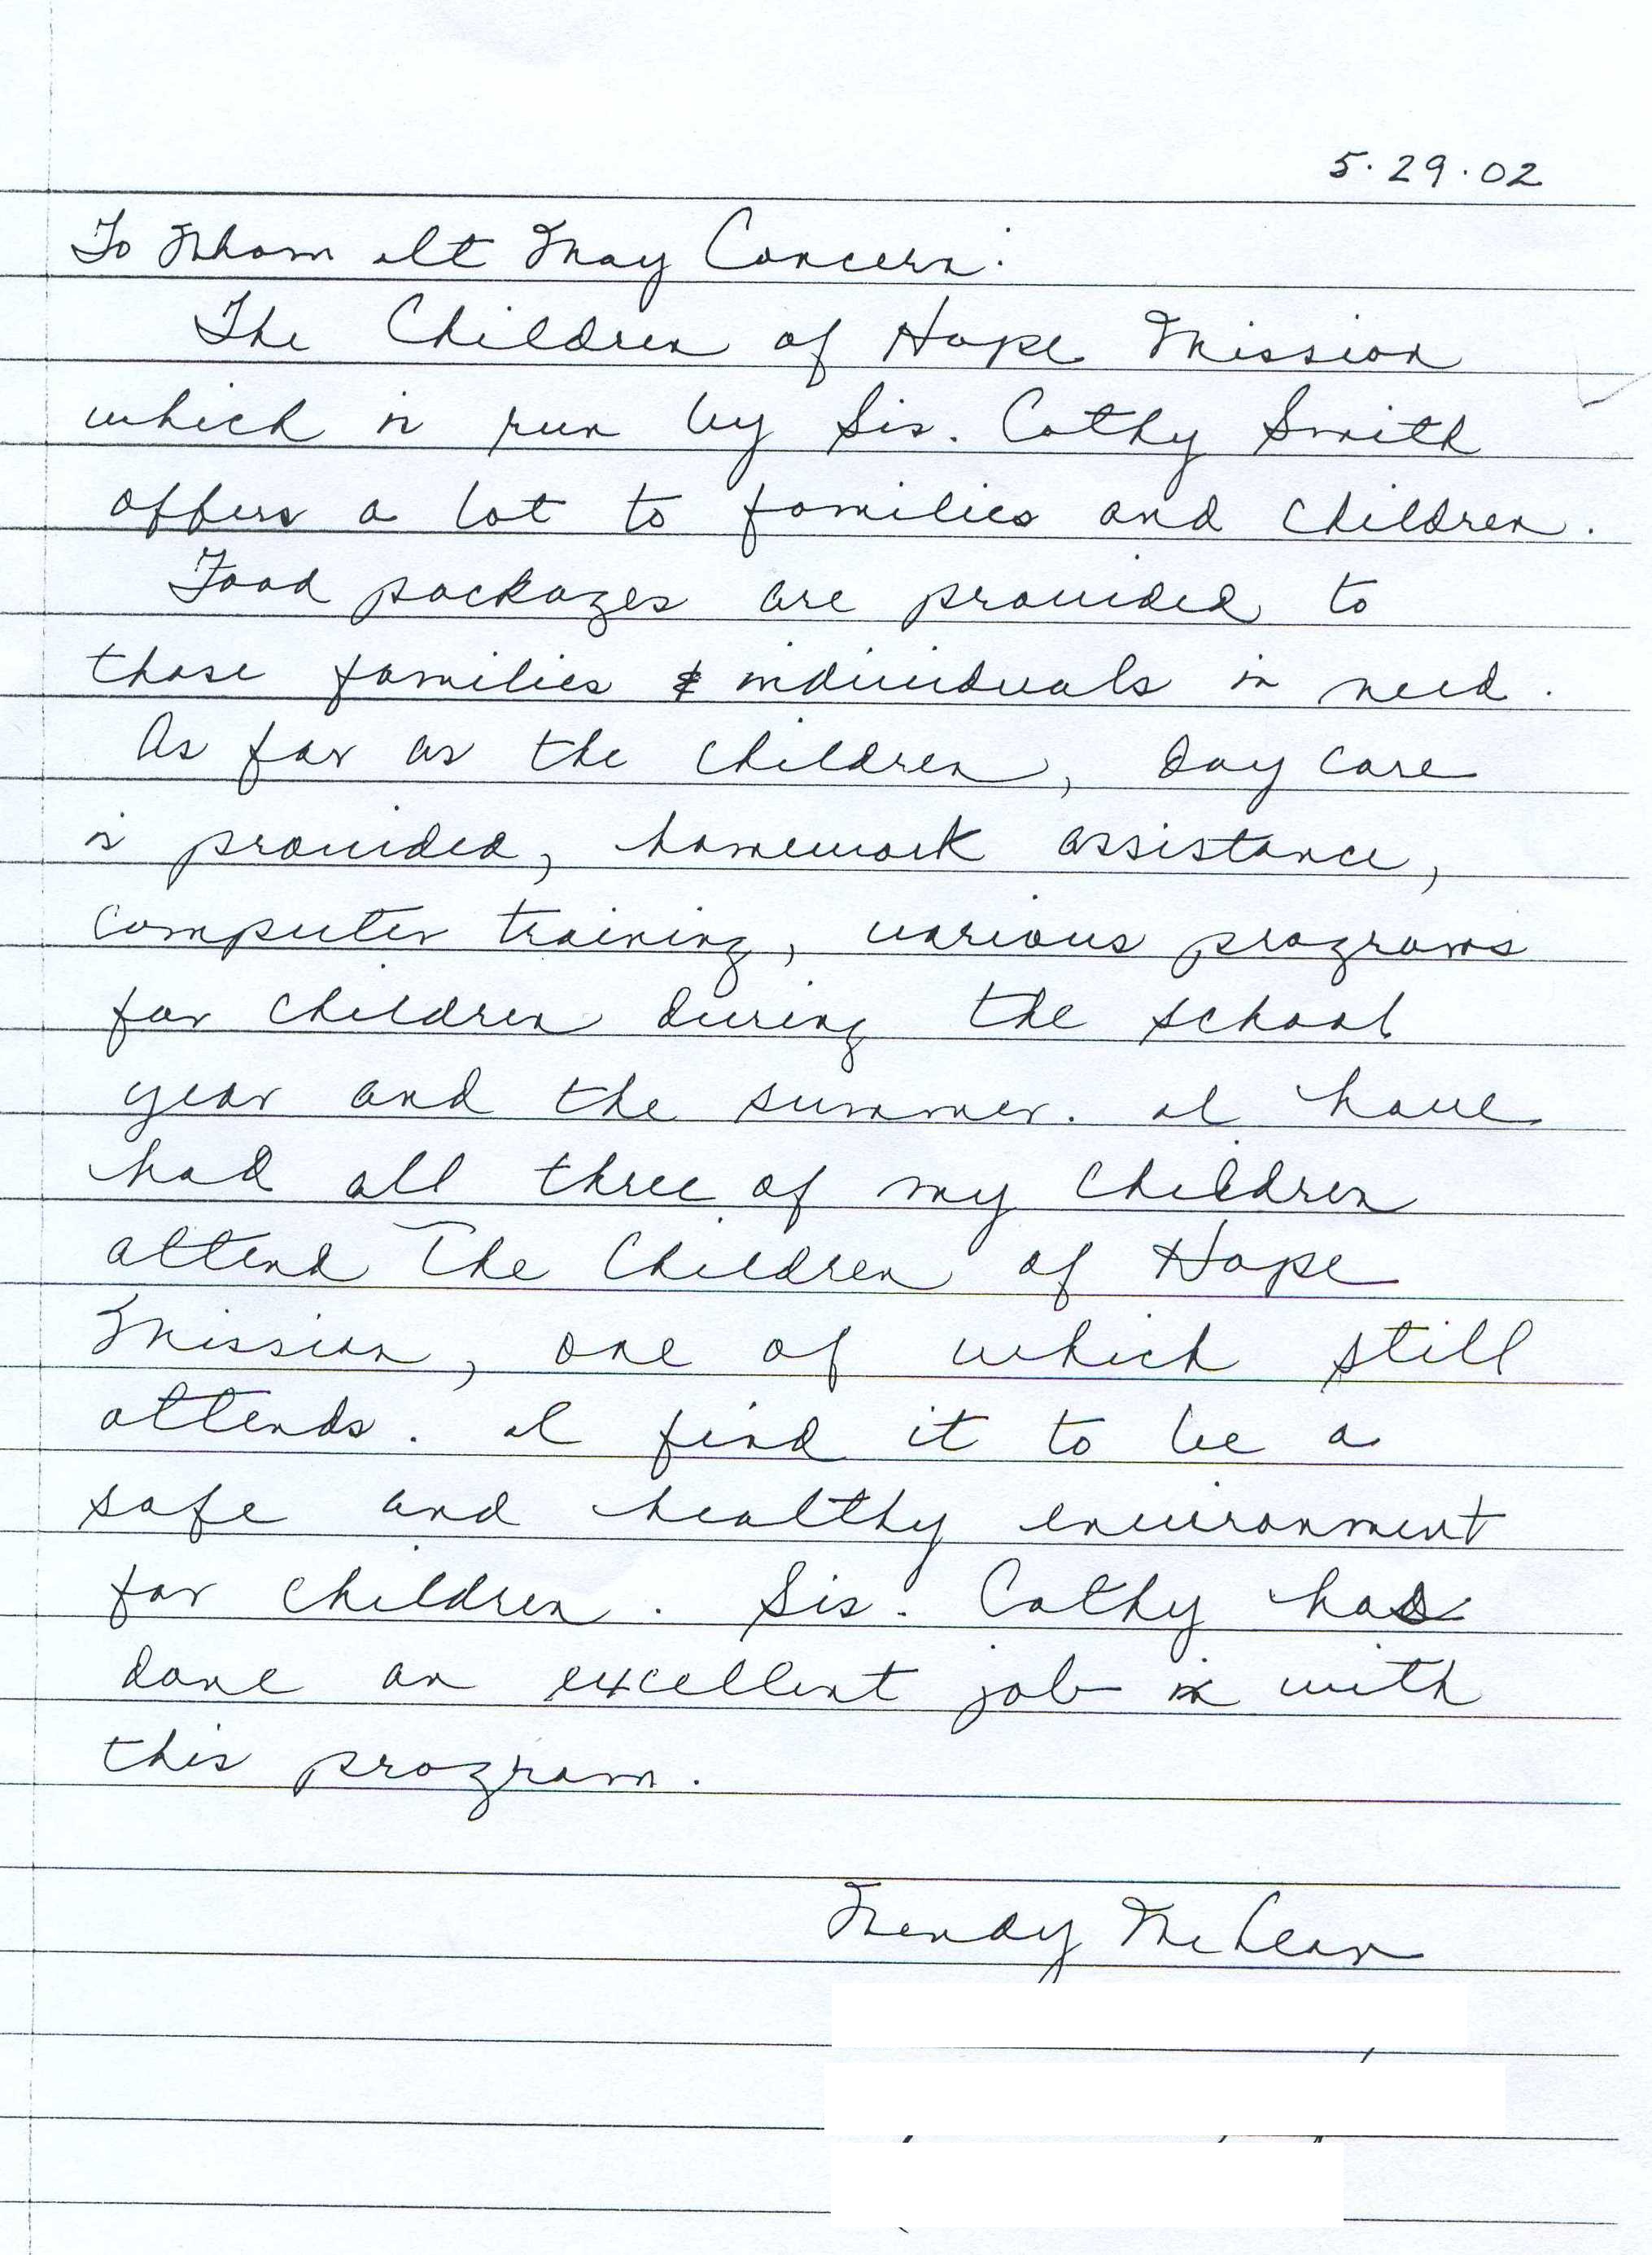 5.29.02
To Whom It May Concern:
The Children of Hope Mission
which is run by Sis. Cathy Smith
offers a lot to families and children.
Food packages are provided to
those families & individuals in need.
As far as the children, day care
is provided, homework assistance,
computer training, various programs
for children during the school
year and the summer. I have
had all three of my children
attend The Children of Hope
Mission, one of which still
attends. I find it to be a
safe and healthy environment
for children. Sis. Cathy has
done an excellent job with
this program.
Wendy McLean